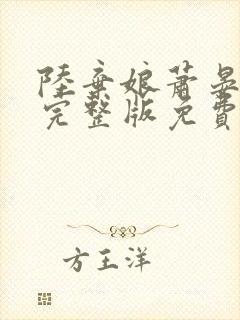 陸棄娘蕭晏
完整版免費
方王洋